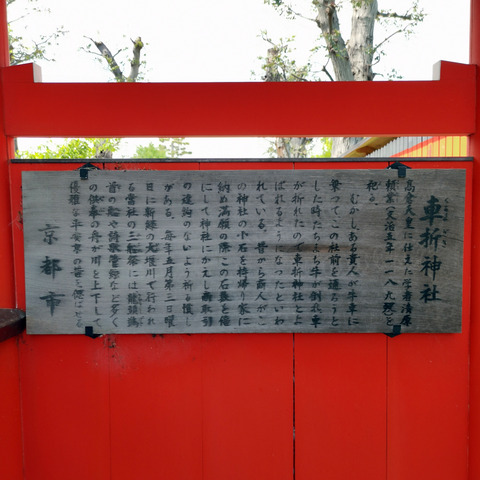 車折神社
くるまざき
高倉天皇に仕えた学者清原
頼業(文治五年一一八九歿)を
祀る。
むかしある貴人が牛車に
乗つてこの社前を通ろうと
した時たちまち牛が倒れ車
が折れたので車折神社とよ
ばれるようになつたといわ
れている。昔から商人がこ
の神社の小石を持帰り家に
納め満願の際この石と倍
にして神社にかえし
の違約のないよう祈る慣し
がある。毎年五月第三日曜
日に新緑の大堰川で行われ
る当社の三船祭には龍頭
首の船や詩歌管絃など多く
の供奉の舟が川を上下して
優雅な平安朝の昔を偲ばせる
京都市